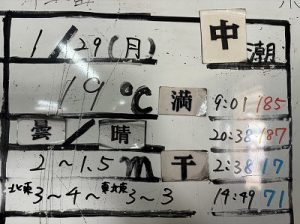 1/29(月) 中潮
19℃ 満 9:01 185
曇/晴 20:38 187
2~1.5m 干 2:38 17
北東3~4~東北東3~3 14:49 71